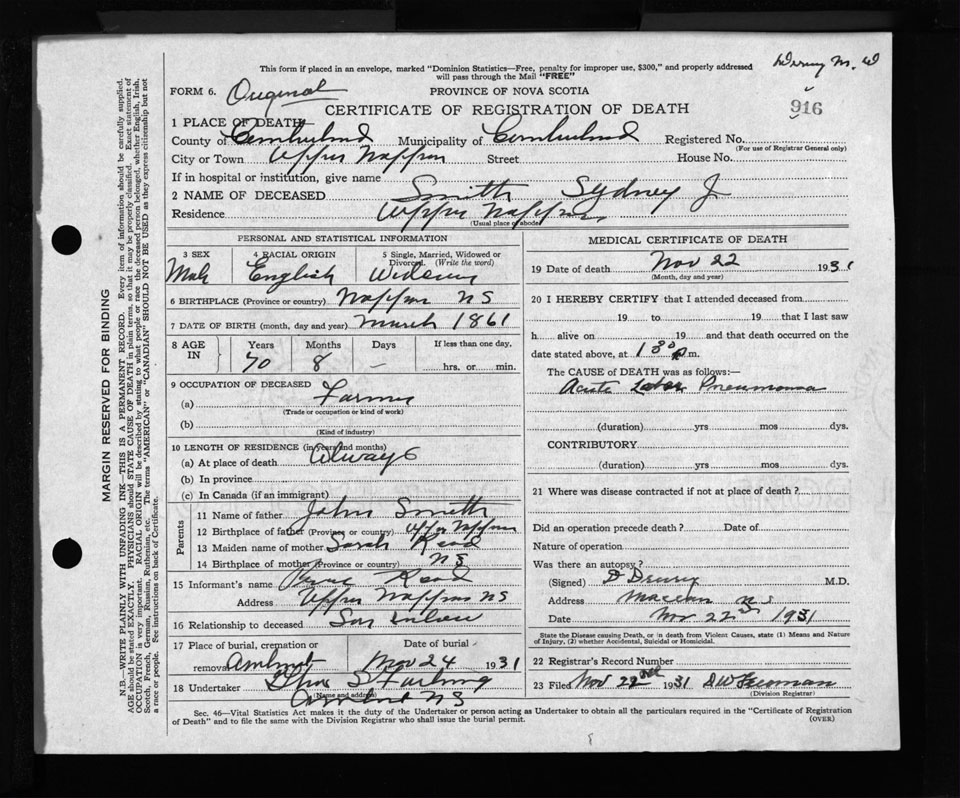 This form if placed in an envelope, marked "Dominion Statistics—Free, penalty for improper use, $300," and properly addressed
will pass through the Mail "FREE"
FORM 6. Original PROVINCE OF NOVA SCOTIA
916
CERTIFICATE OF REGISTRATION OF DEATH
1 PLACE OF DEATH
County of Cumberland Municipality of Cumberland Registered No.
(For use of Registrar General only)
City or Town Upper Nappan Street House No.
If in hospital or institution, give name
2 NAME OF DECEASED Smith Sydney J
Residence Upper Nappan
(Usual place of abode)
PERSONAL AND STATISTICAL INFORMATION
3 SEX 4 RACIAL ORIGIN 5 Single, Married, Widowed or
Divorced. (Write the word)
Male English Widower
6 BIRTHPLACE (Province or country) Nappan NS
7 DATE OF BIRTH (month, day and year) March 1861
8 AGE IN Years Months Days If less than one day,
70 8 — hrs. or min.
9 OCCUPATION OF DECEASED
(a) Farmer
(Trade or occupation or kind of work)
(b)
(Kind of industry)
10 LENGTH OF RESIDENCE (in years and months)
(a) At place of death Always
(b) In province
(c) In Canada (if an immigrant)
Parents
11 Name of father John Smith
12 Birthplace of father (Province or country) Upper Nappan
13 Maiden name of mother Sarah Read
14 Birthplace of mother (Province or country) NS
15 Informant's name Read
Address Upper Nappan NS
16 Relationship to deceased Son
17 Place of burial, cremation or Date of burial
removal Amherst Nov 24 1931
18 Undertaker
(Name and address)
Amherst NS
MEDICAL CERTIFICATE OF DEATH
19 Date of death Nov 22 1931
(Month, day and year)
20 I HEREBY CERTIFY that I attended deceased from
19 to 19 that I last saw
h alive on 19 and that death occurred on the
date stated above, at 1 30 p.m.
The CAUSE of DEATH was as follows:—
Acute Lobar Pneumonia
(duration) yrs mos dys.
CONTRIBUTORY
(duration) yrs mos dys.
21 Where was disease contracted if not at place of death?
Did an operation precede death? Date of
Nature of operation
Was there an autopsy?
(Signed) D Drury M.D.
Address Maccan N.S
Date Nov 22 1931
State the Disease causing Death, or in death from Violent Causes, state (1) Means and Nature
of Injury, (2) whether Accidental, Suicidal or Homicidal.
22 Registrar's Record Number
23 Filed Nov 22nd 1931 DW Freeman
(Division Registrar)
Sec. 46—Vital Statistics Act makes it the duty of the Undertaker or person acting as Undertaker to obtain all the particulars required in the "Certificate of Registration
of Death" and to file the same with the Division Registrar who shall issue the burial permit. (OVER)
MARGIN RESERVED FOR BINDING
N.B.—WRITE PLAINLY WITH UNFADING INK—THIS IS A PERMANENT RECORD. Every item of information should be carefully supplied.
AGE should be stated EXACTLY. PHYSICIANS should STATE CAUSE OF DEATH in plain terms, so that it may be properly classified. Exact statement of
OCCUPATION is very important. RACIAL ORIGIN will be described by stating to what people or race the deceased person belonged, whether English, Irish,
Scotch, French, German, Russian, Ruthenian, etc. The terms "AMERICAN" or "CANADIAN" SHOULD NOT BE USED as they express citizenship but not
a race or people. See instructions on back of Certificate.